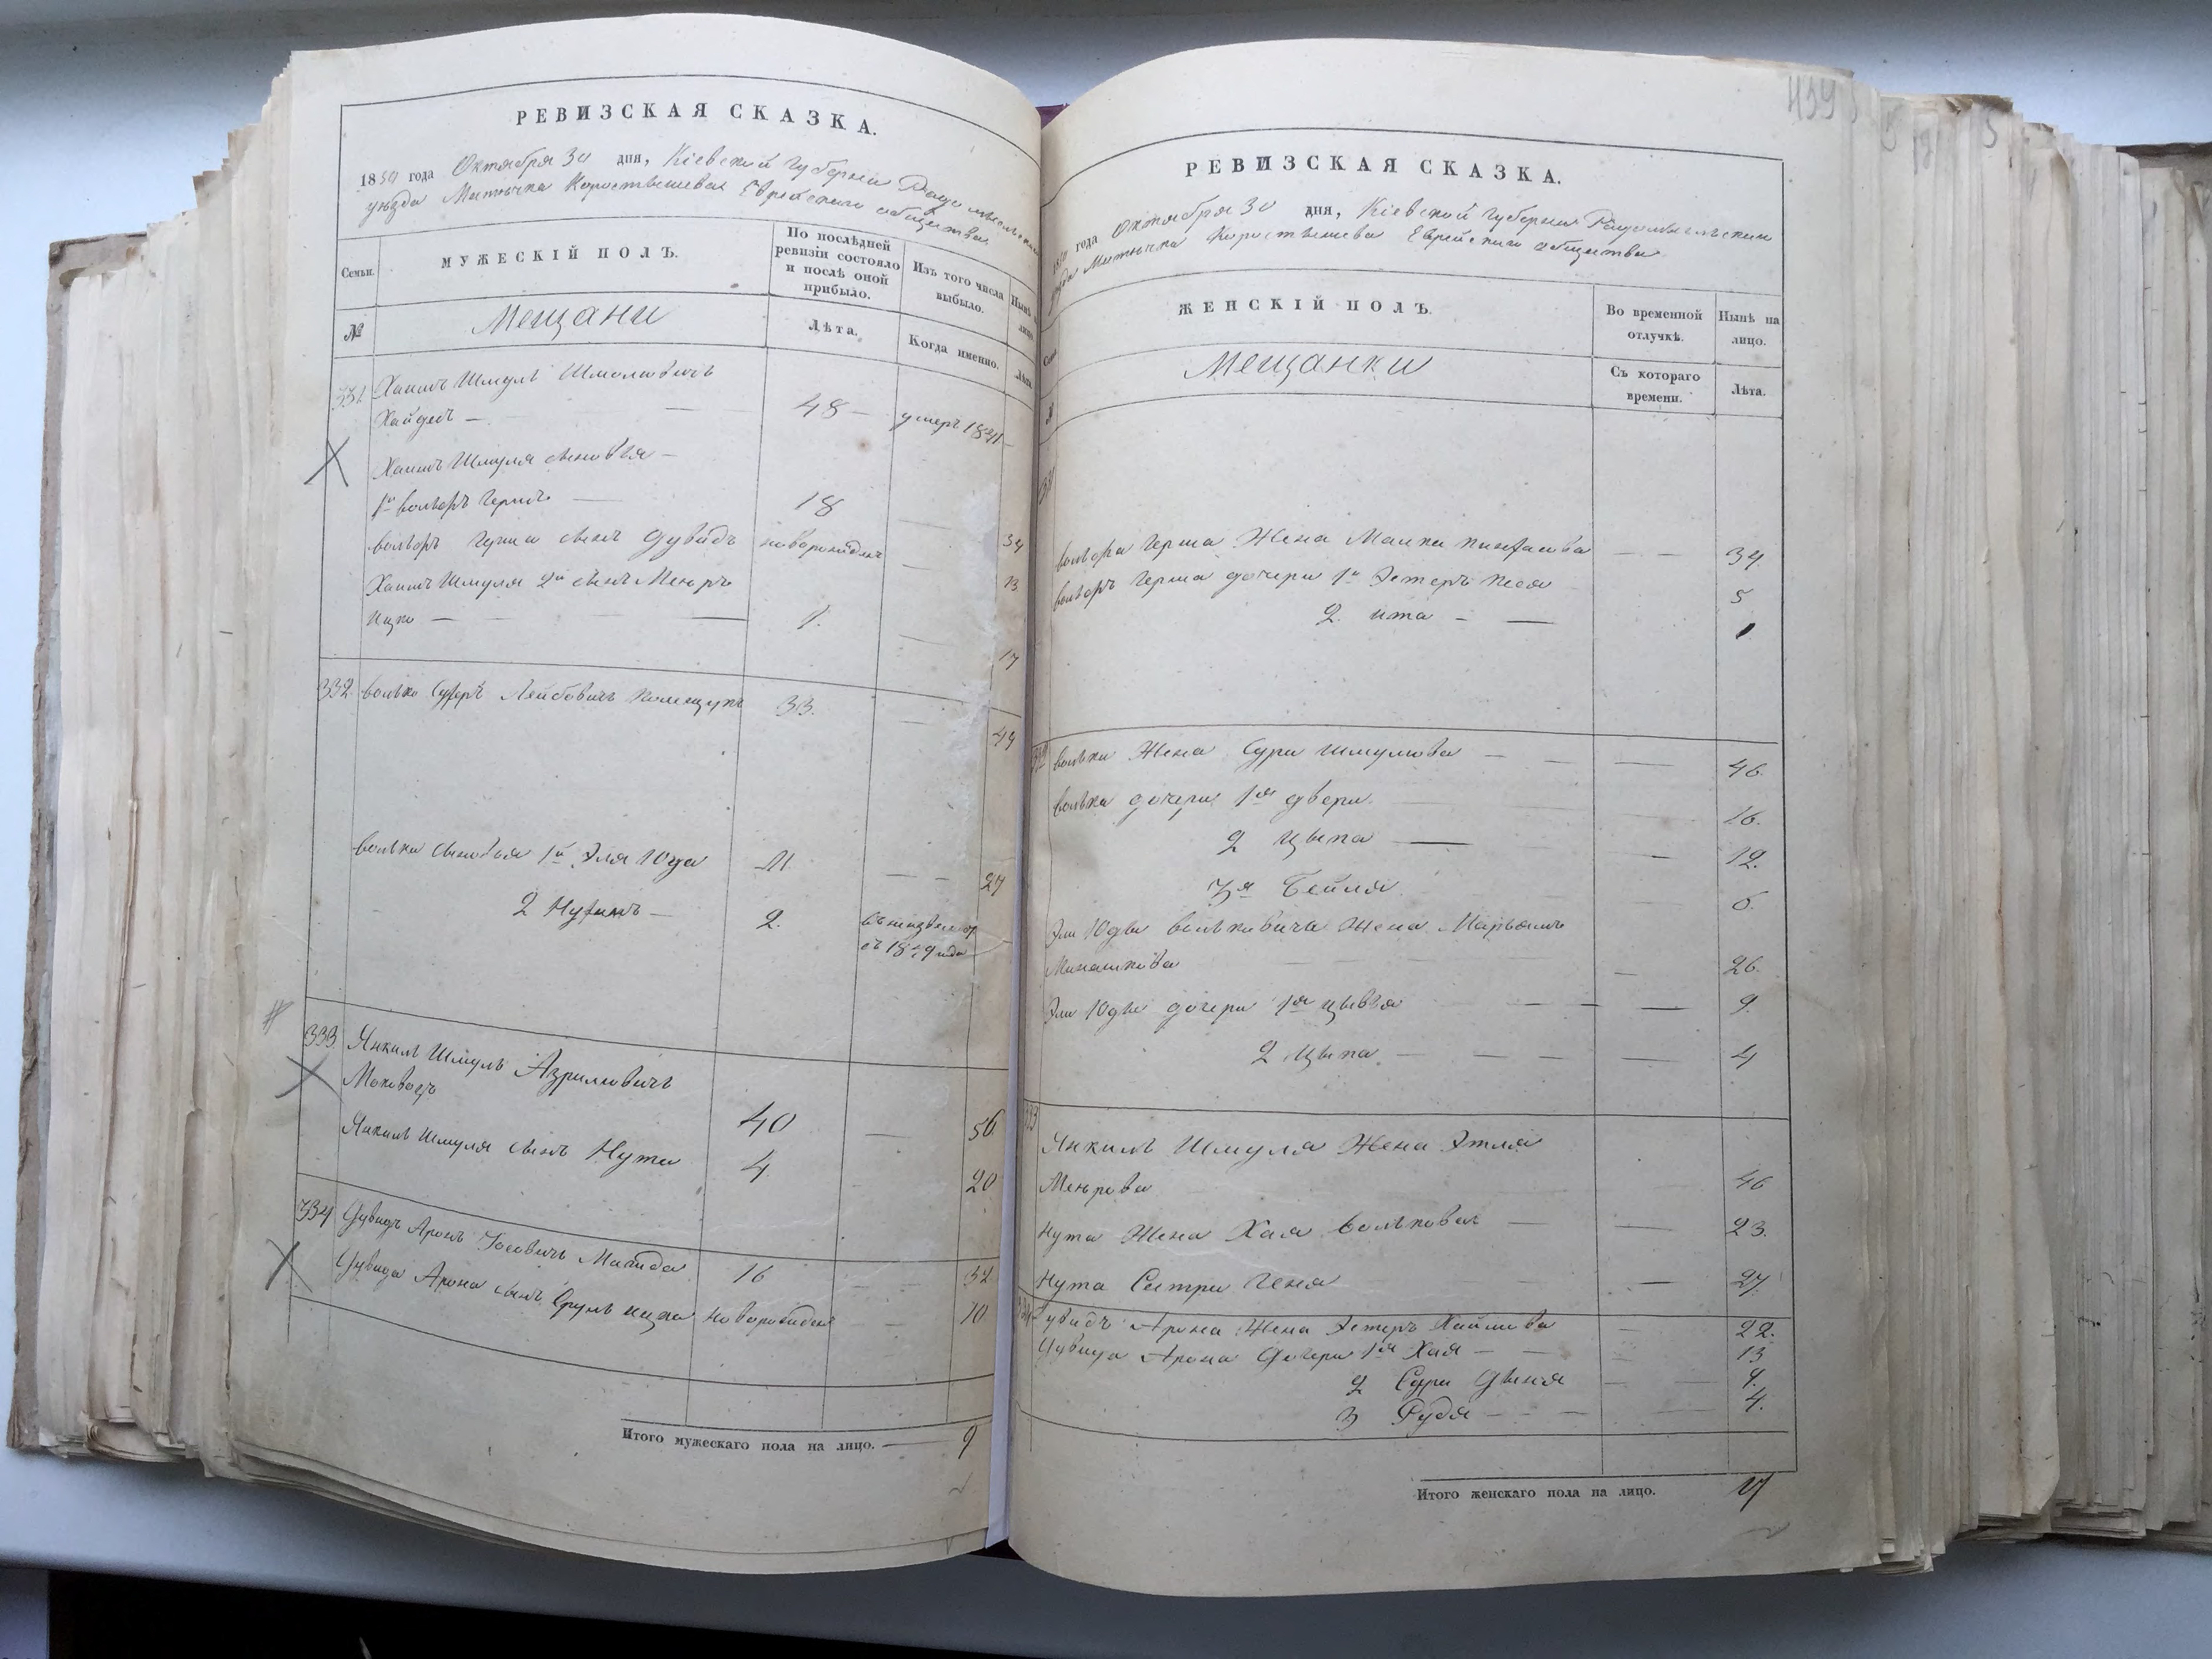 РЕВИЗСКАЯ СКАЗКА.
1850 года Октября 30 дня, Кіевской Губерніи Радомысльскаго
уѣзда Мѣстечка Коростышева Еврейскаго общества
Семьи. МУЖЕСКІЙ ПОЛЪ. По послѣдней ревизіи состояло и послѣ оной прибыло. Изъ того числа выбыло. Нынѣ
№ Мещани Лѣта. Когда именно. Лѣта.
331 Хаимъ Шмуль Шмулевичъ
48 умеръ 1841
Хаимъ Шмуля сыновья
1й Вольфъ Гершъ 18 34
Вольфъ Герша сынъ Дувидъ новорожденъ 13
Хаимъ Шмуля 2й сынъ Меиръ
Ицко 1. 17
332 Волько Лейбовичъ 33. 49
Волька сыновья 1й Эля Юда 11. 27
2 Нухимъ 2.
съ 1849 года
333. Янкель Шмуль Азрилевичъ
Маковецъ 40 56.
Янкель Шмуля сынъ Нута 4. 20
334 Дувидъ Аронъ Іосевичъ 16 32
Дувида Арона сынъ Срулъ Ицко новорожденъ 10
Итого мужескаго пола на лицо. 9
439
РЕВИЗСКАЯ СКАЗКА.
года Октября 30 дня, Кіевской Губерніи Радомысльскаго
Мѣстечка Коростышева Еврейскаго общества
ЖЕНСКІЙ ПОЛЪ. Во временной отлучкѣ. Нынѣ на лицо.
Мещанки Съ котораго времени. Лѣта.
331
Вольфа Герша Жена Малка 34.
Вольфъ Герша дочери 1я Эстеръ Песя 5
2 Ита 1
332 Волька Жена Сура Шмулева 46.
Волька дочери 1я Двера 16.
2 Цыпа 12.
3я Бейля 6.
Эли Юды Вольковича Жена Марьямъ
Монашкова 26.
Эли Юды дочери 1я Цывья 9.
2 Цыпа 4
333
Янкель Шмуля Жена Этля
Меирова 46
Нута Жена Хая Волькова 23.
Нута Сестра Геня 27.
334 Дувидъ Арона Жена Эстеръ Хаимова 22.
Дувида Арона Дочери 1я Хая 13
2 Сура Двыня 9.
3 Рудя 4.
Итого женскаго пола на лицо. 17